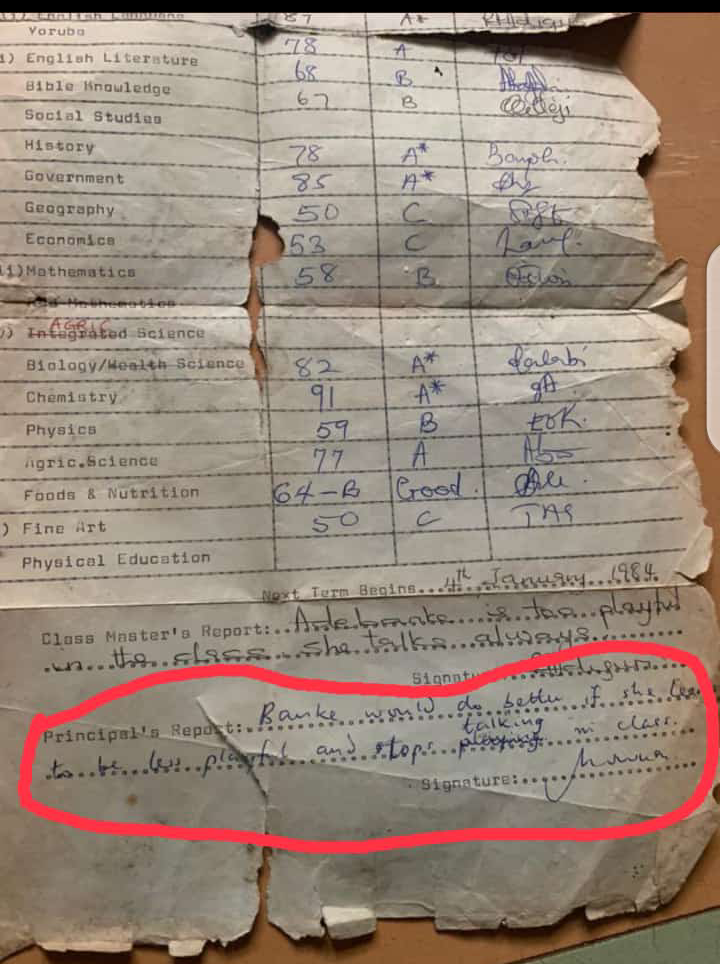 (i) English Language 87 A*
Yoruba 78 A
i) English Literature 68 B
Bible Knowledge 67 B
Social Studies
History 78 A*
Government 85 A*
Geography 50 C
Economics 53 C
ii) Mathematics 58 B
Add Mathematics
) Integrated Science AGRIC
Biology/Health Science 82 A*
Chemistry 91 A*
Physics 59 B
Agric.Science 77 A
Foods & Nutrition 64-B Good.
) Fine Art 50 C TAS
Physical Education
Next Term Begins...4th January...1984
Class Master's Report:..Adebanke is too playful
in the class she talks always
Signatu
Principal's Report: Banke would do better if she lea
talking
to be less playful and stops playing in class.
Signature: